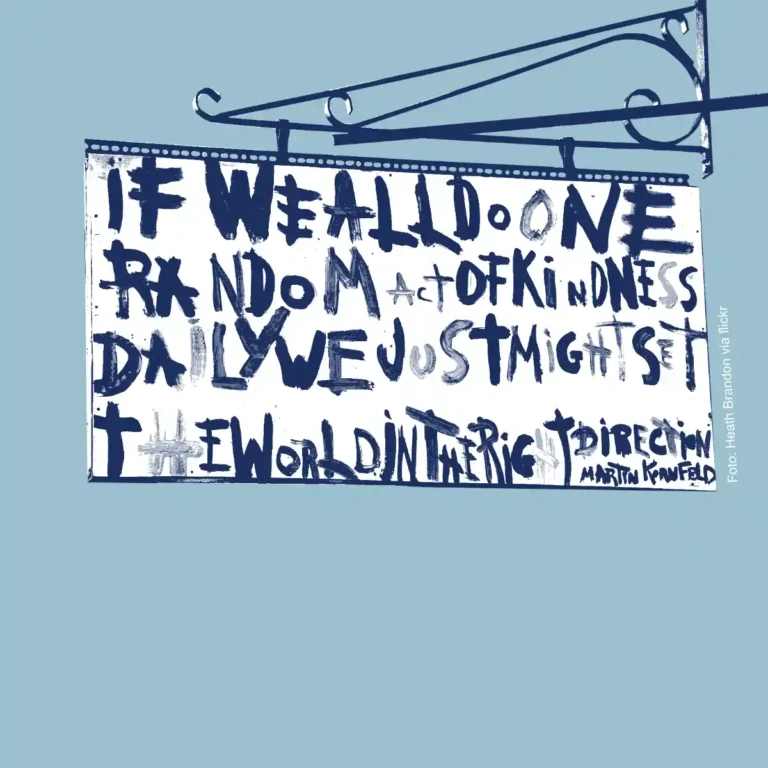 IF WE ALL DO ONE
RANDOM ACT OF KINDNESS
DAILY WE JUST MIGHT SET
THE WORLD IN THE RIGHT DIRECTION
MARTIN KORNFELD
Foto: Heath Brandon via flickr